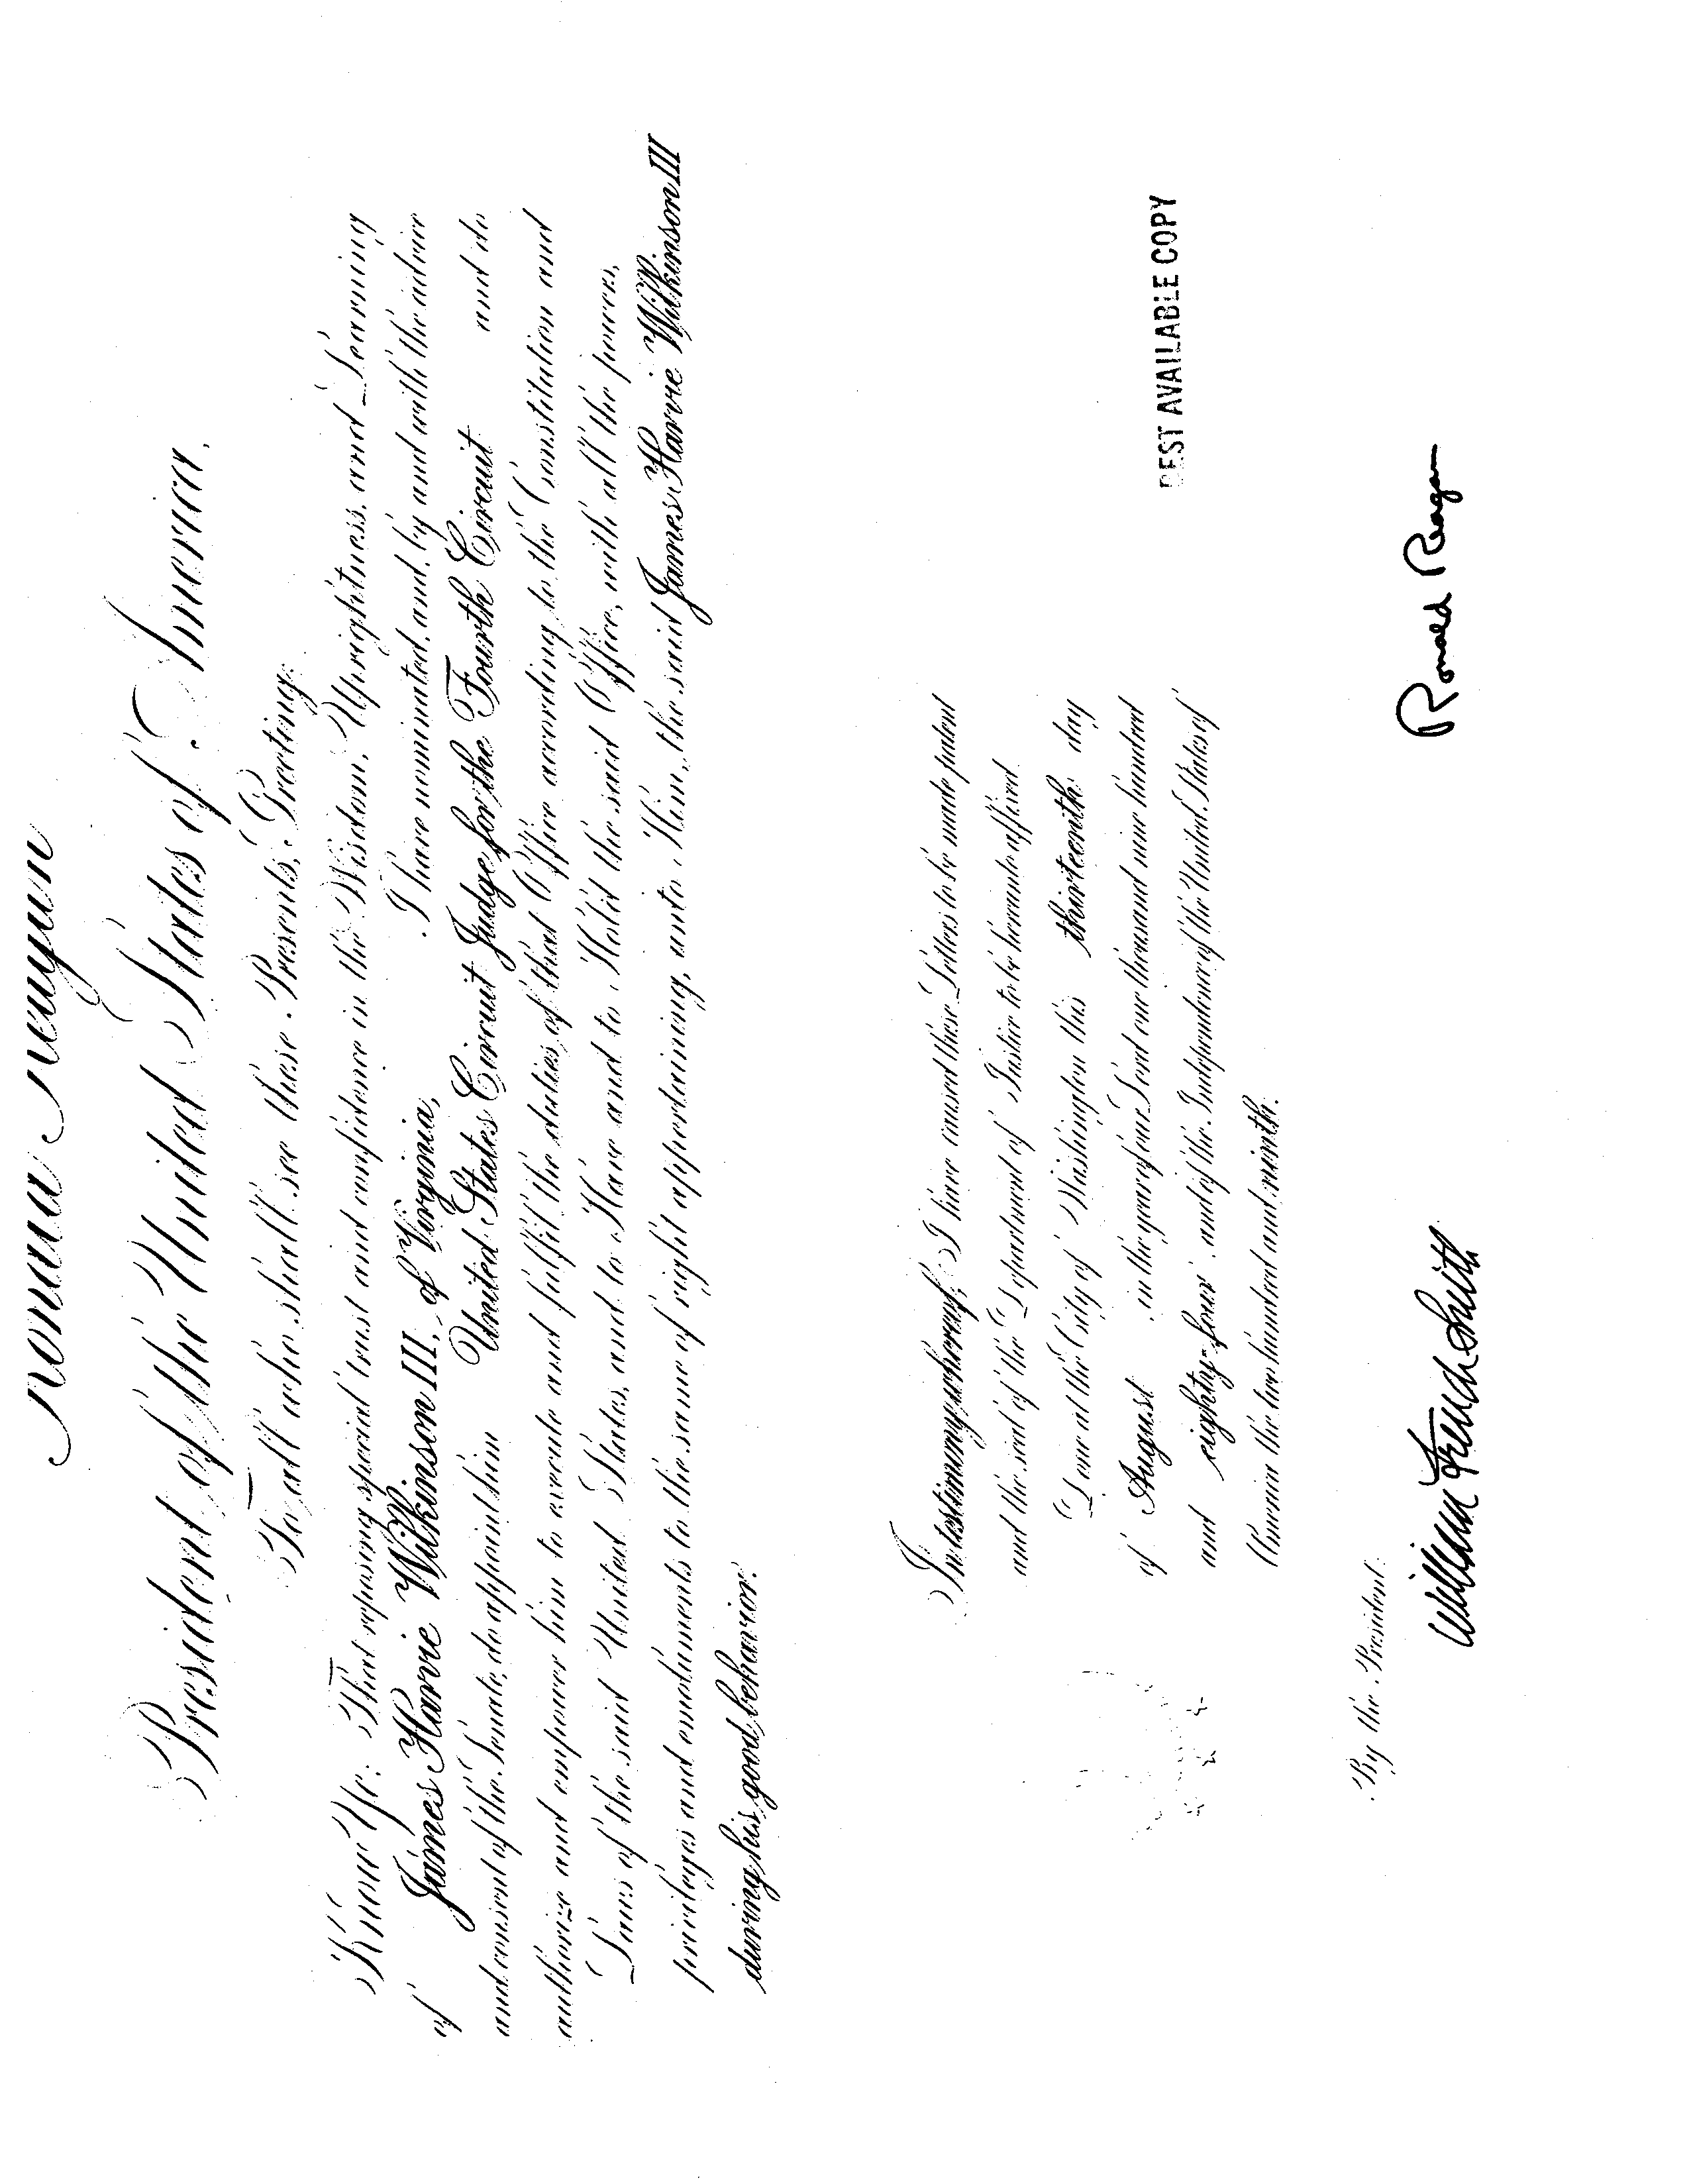 Ronald Reagan
President of the United States of America.
To all who shall see these Presents, Greeting:
Know Ye: That reposing special trust and confidence in the Wisdom, Uprightness, and Learning
of James Harvie Wilkinson III, of Virginia, I have nominated, and, by and with the advice
and consent of the Senate, do appoint him United States Circuit Judge for the Fourth Circuit and do
authorize and empower him to execute and fulfil the duties of that Office according to the Constitution and
Laws of the said United States, and to Have and to Hold the said Office, with all the powers,
privileges and emoluments to the same of right appertaining, unto Him, the said James Harvie Wilkinson III
during his good behavior.
In testimony whereof, I have caused these Letters to be made patent
and the seal of the Department of Justice to be hereunto affixed.
Done at the City of Washington this thirteenth day
of August in the year of our Lord one thousand nine hundred
and eighty-four and of the Independence of the United States of
America the two hundred and ninth.
BEST AVAILABLE COPY
By the President:
Ronald Reagan
William French Smith